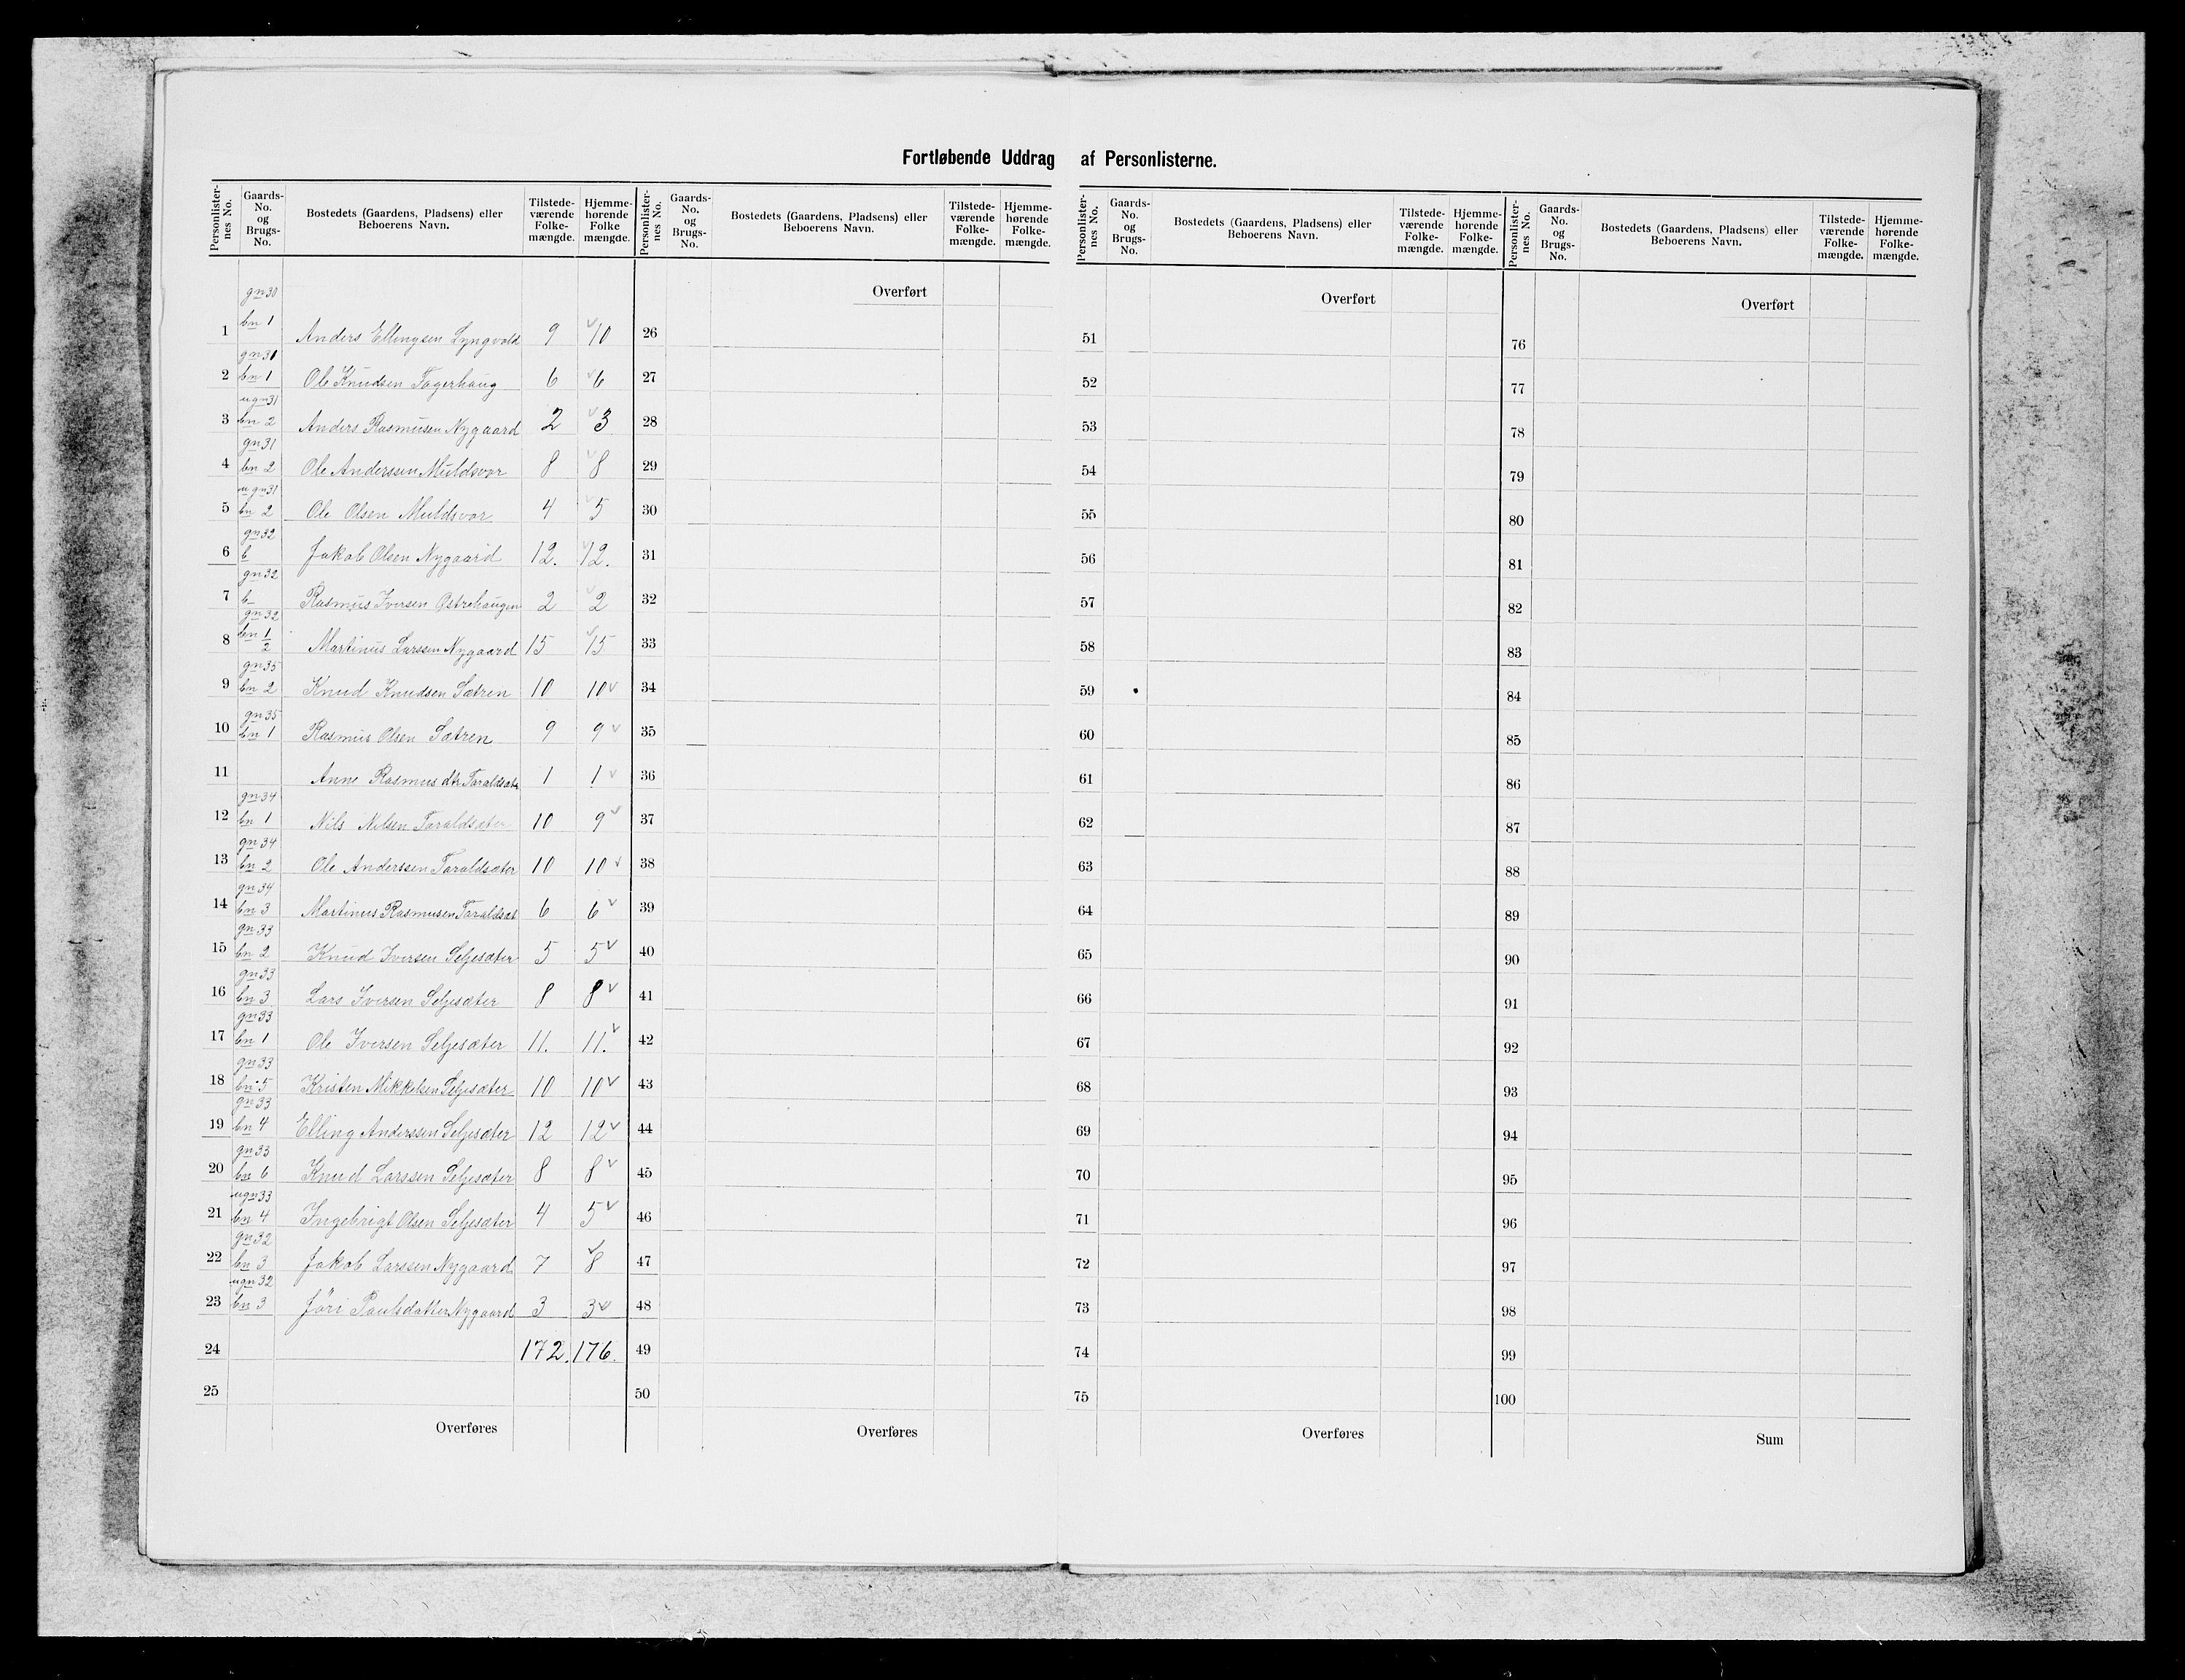 Fortløbende Uddrag af Personlisterne.
Personlisternes No. Gaards-No. og Brugs-No. Bostedets (Gaardens, Pladsens) eller Beboerens Navn. Tilstedeværende Folkemængde. Hjemmehørende Folkemængde.
Personlisternes No. Gaards-No. og Brugs-No. Bostedets (Gaardens, Pladsens) eller Beboerens Navn. Tilstedeværende Folkemængde. Hjemmehørende Folkemængde.
Personlisternes No. Gaards-No. og Brugs-No. Bostedets (Gaardens, Pladsens) eller Beboerens Navn. Tilstedeværende Folkemængde. Hjemmehørende Folkemængde.
Personlisternes No. Gaards-No. og Brugs-No. Bostedets (Gaardens, Pladsens) eller Beboerens Navn. Tilstedeværende Folkemængde. Hjemmehørende Folkemængde.
Overført Overført Overført
gn 30
1 bn 1 Anders Ellingsen Lyngvold 9 10 26 51 76
gn 31
2 bn 1 Ole Knudsen Fagerhaug 6 6 27 52 77
u gn 31
3 bn 2 Anders Rasmusen Nygaard 2 3 28 53 78
gn 31
4 bn 2 Ole Anderssen Muldsvor 8 8 29 54 79
u gn 31
5 bn 2 Ole Olsen Muldsvor 4 5 30 55 80
gn 32
6 b Jakob Olsen Nygaard 12. 12. 31 56 81
gn 32
7 b Rasmus Iversen Østrehaugen 2 2 32 57 82
gn 32
8 bn 1/2 Martinus Larssen Nygaard 15 15 33 58 83
gn 35
9 bn 2 Knud Knudsen Sætren 10 10 34 59 84
gn 35
10 bn 1 Rasmus Olsen Sætren 9 9 35 60 85
11 Anne Rasmus dtr Taraldsæt 1 1 36 61 86
gn 34
12 bn 1 Nils Nilsen Taraldsæter 10 9 37 62 87
gn 34
13 bn 2 Ole Anderssen Taraldsæter 10 10 38 63 88
gn 34
14 bn 3 Martinus Rasmusen Taraldsæt 6 6 39 64 89
gn 33
15 bn 2 Knud Iversen Seljesæter 5 5 40 65 90
gn 33
16 bn 3 Lars Iversen Seljesæter 8 8 41 66 91
gn 33
17 bn 1 Ole Iversen Seljesæter 11. 11. 42 67 92
gn 33
18 bn 5 Kristen Mikkelsen Seljesæter 10 10 43 68 93
gn 33
19 bn 4 Elling Anderssen Seljesæter 12 12 44 69 94
gn 33
20 bn 6 Knud Larssen Seljesæter 8 8 45 70 95
u gn 33
21 bn 4 Ingebrigt Olsen Seljesæter 4 5 46 71 96
gn 32
22 bn 3 Jakob Larssen Nygaard 7 8 47 72 97
u gn 32
23 bn 3 Jöri Paulsdatter Nygaard 3 3 48 73 98
24 172. 176. 49 74 99
25 50 75 100
Overføres Overføres Overføres Sum